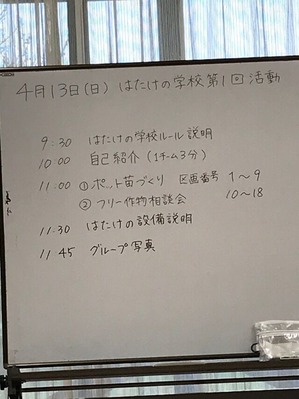 4月13日(日) はたけの学校第1回活動
9:30 はたけの学校ルール説明
10:00 自己紹介(1チーム3分)
11:00 ①ポット苗づくり 区画番号 1〜9
②フリー作物相談会 10〜18
11:30 はたけの設備説明
11 45 グループ写真